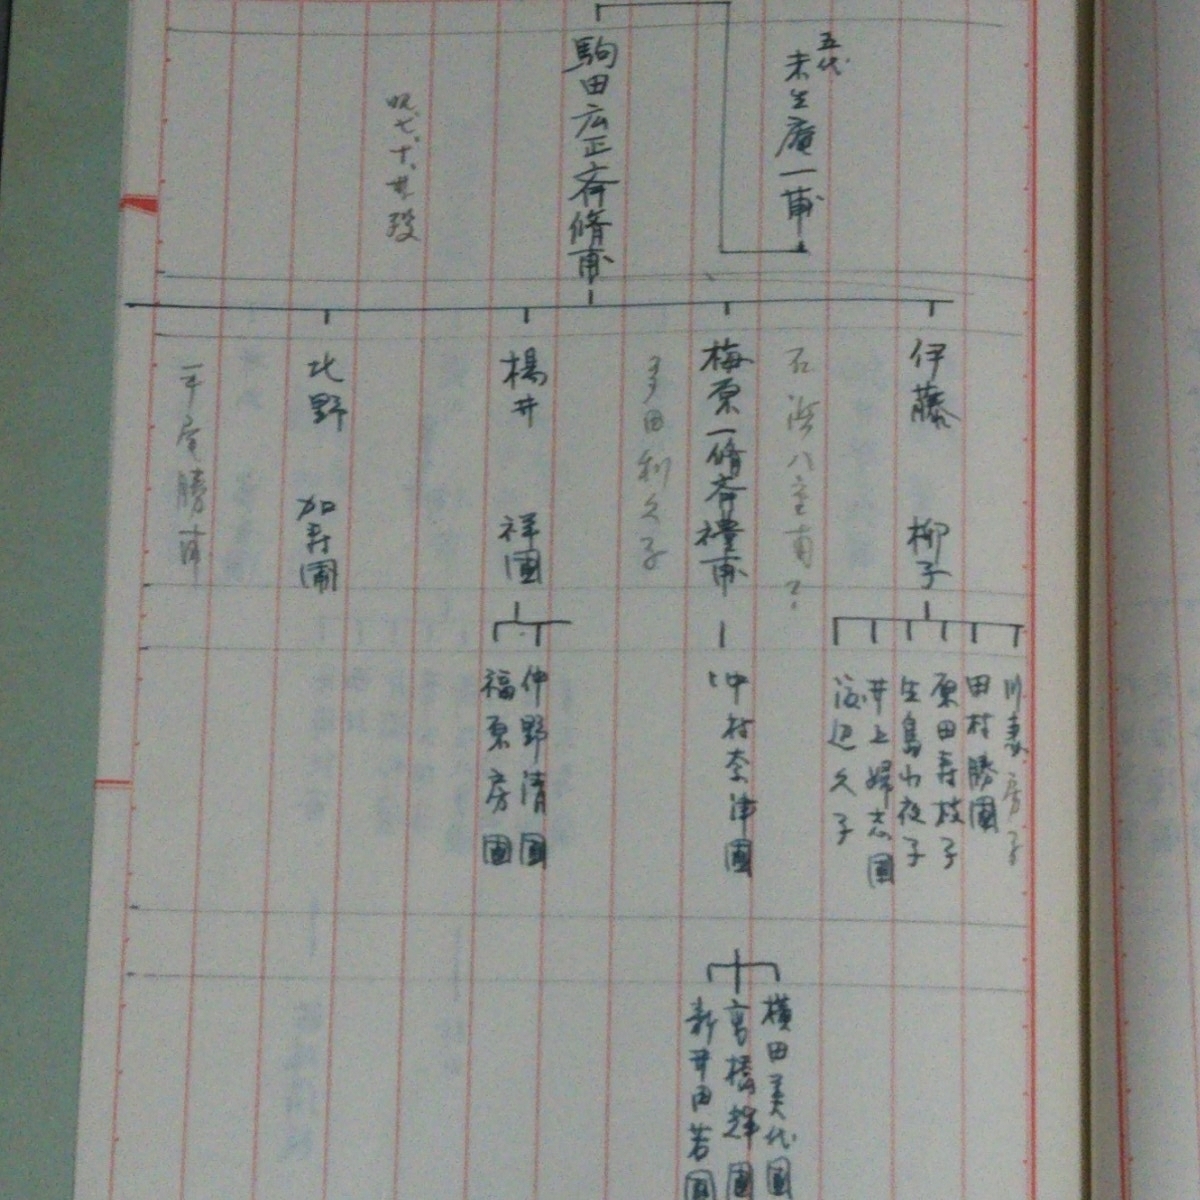 五代
未生庵一甫
駒田広正斉脩甫
昭、七、十、廿 歿
伊藤 柳子
石浜八重甫
梅原一脩斉禮甫
多田利久子
楊井 祥圃
北野 加寿圃
平尾勝甫
川妻房子
田村勝圃
原田寿枝子
生島小夜子
井上婦志圃
渡辺久子
中村奈津圃
仲野清圃
福原房圃
横田美代圃
高橋輝圃
新井由若圃